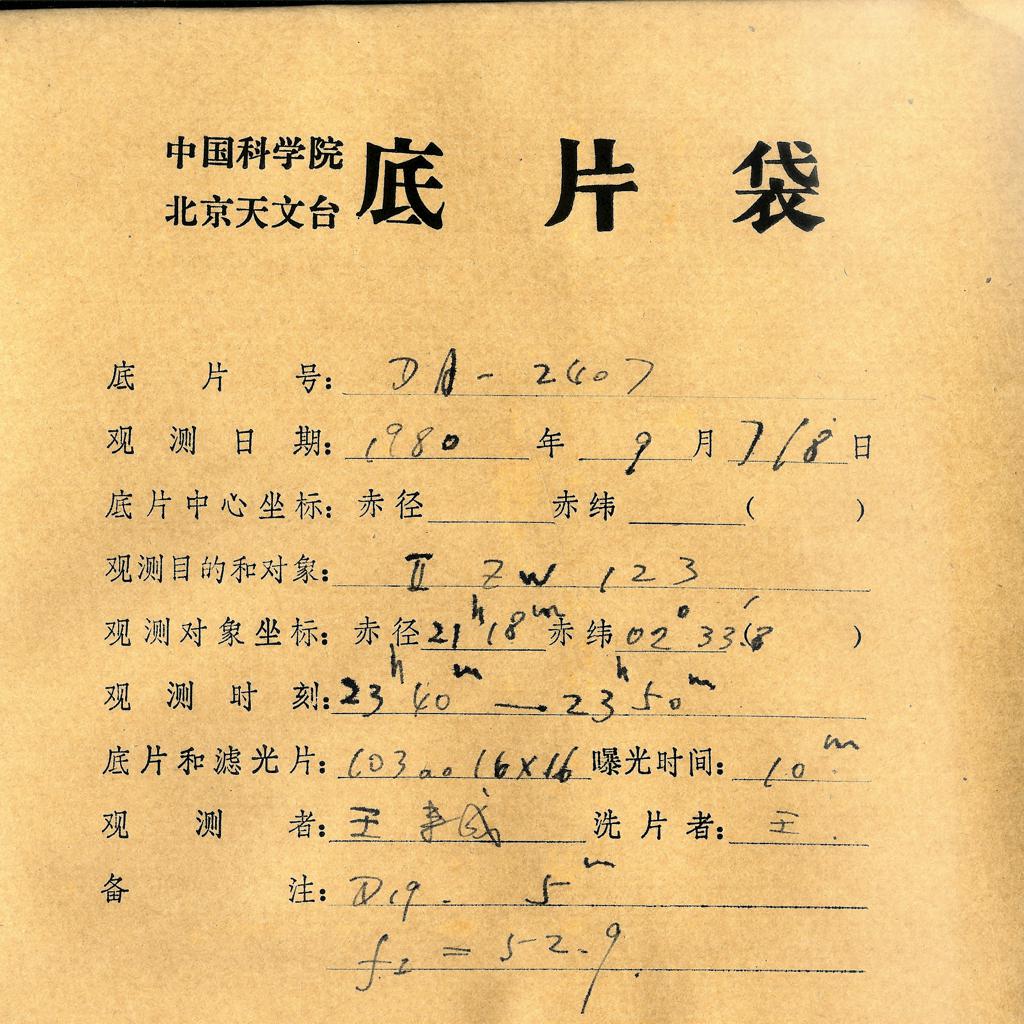 中国科学院
北京天文台
底片袋
底片号: DA-2407
观测日期: 1980年 9月 7/8日
底片中心坐标: 赤径 赤纬 ( )
观测目的和对象: II ZW 123
观测对象坐标: 赤径 21h18m 赤纬 02°33′ )
观测时刻: 23h40m — 23h50m
底片和滤光片: 103ao 16×16 曝光时间: 10m
观测者: 王 洗片者: 王
备注: D19. 5m
= 52.9